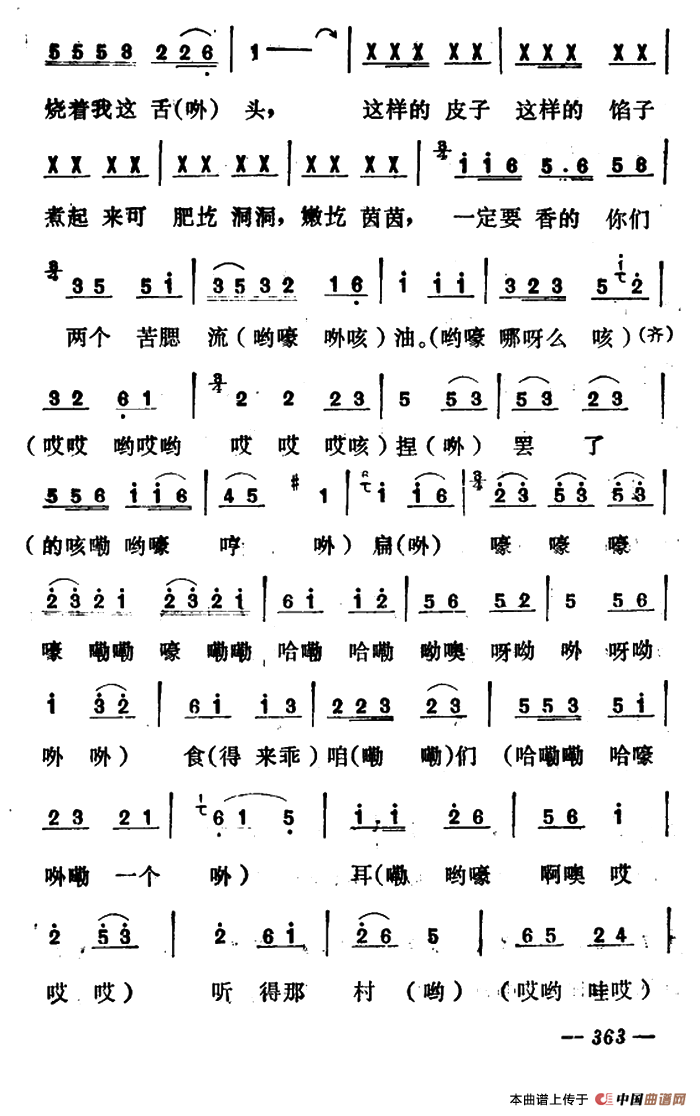 5553 226 | 1 — | XXX XX XXX XX
烧着我这 舌(哟) 头， 这样的 皮子 这样的 馅子
XX XX | XX XX | XX XX | 3/4 i i6 5.6 56
煮起 来可 肥圪 洞洞，嫩圪 茵茵，一定要 香的 你们
3/4 35 5i | 3532 16 | i ii | 323 5 2
两个 苦腮 流(哟嚎 咳)油。(哟嚎 哪呀么 咳)(齐)
32 61 | 3/4 2 2 23 | 5 53 | 53 23
(哎哎 哟哎哟 哎 哎 哎咳)捏( ) 罢 了
556 ii6 | 45 #1 | i i6 | 3/4 23 53 53
(的咳嘞 哟嚎 哼 ) 扁( ) 嚎 嚎 嚎
232i 232i | 6i i2 | 56 52 | 5 56
嚎 嘞嘞 嚎 嘞嘞 哈嘞 哈嘞 呦噢 呀呦 呀呦
i 32 | 6i i3 | 223 23 | 553 5i
) 食(得 来乖) 咱(嘞 嘞)们 (哈嘞嘞 哈嚎
23 21 | 61 5 | i.i 26 | 56 i
嘞 一个 ) 耳(嘞 哟嚎 啊噢 哎
2 53 | 2 6i | 26 5 | 65 24
哎 哎) 听 得那 村 (哟) (哎哟 哇哎)
— 363 —
本曲谱上传于 中国曲谱网